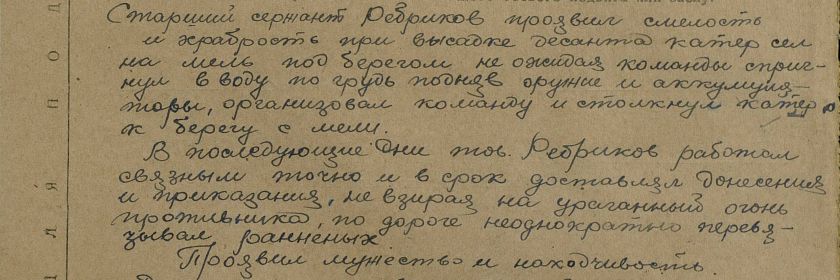 Старший сержант Ребриков проявил смелость
и храбрость при высадке десанта катер сел
на мель под берегом не ожидая команды спрыг-
нул в воду по грудь подняв оружие и аккумуля-
торы, организовал команду и столкнул катер
к берегу с мели.
В последующие дни тов. Ребриков работал
связным точно и в срок доставлял донесения
и приказания, не взирая на ураганный огонь
противника, по дороге неоднократно перевя-
зывал раненых
Проявил мужество и находчивость.